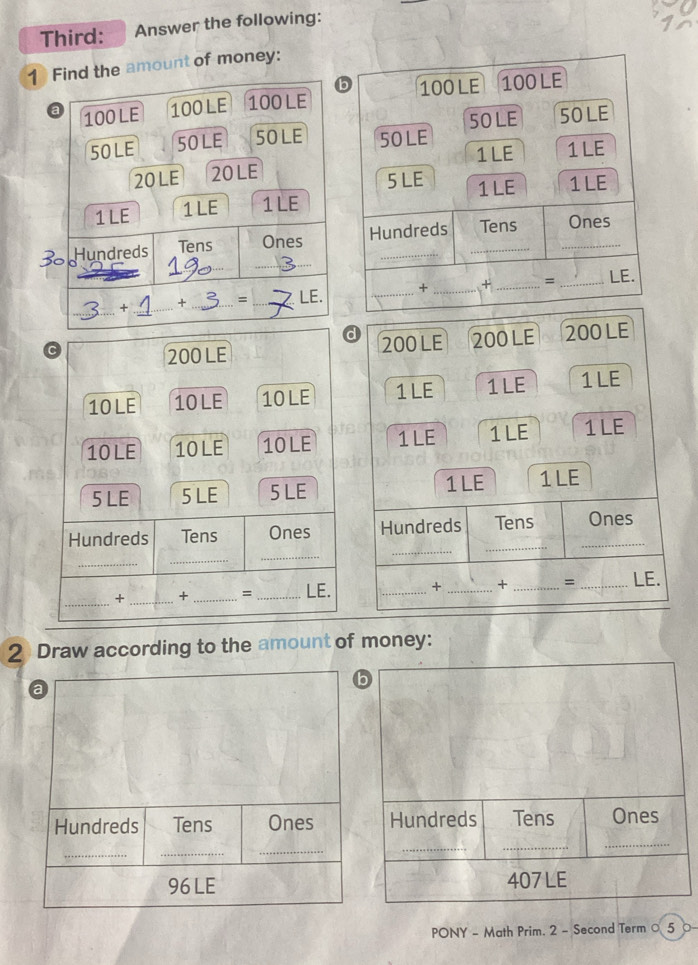 Third: Answer the following:
1 Find the amount of money:
a
100 LE 100 LE 100 LE
50 LE 50 LE 50 LE
20 LE 20 LE
1 LE 1 LE 1 LE
Hundreds Tens Ones
300 190 3
3 + 1 + 3 = 7 LE.
b
100 LE 100 LE
50 LE 50 LE 50 LE
1 LE 1 LE
5 LE 1 LE 1 LE
Hundreds Tens Ones
........ ........ ........
........ + ........ + ........ = ........ LE.
c
200 LE
10 LE 10 LE 10 LE
10 LE 10 LE 10 LE
5 LE 5 LE 5 LE
Hundreds Tens Ones
........ ........ ........
........ + ........ + ........ = ........ LE.
d
200 LE 200 LE 200 LE
1 LE 1 LE 1 LE
1 LE 1 LE 1 LE
1 LE 1 LE
Hundreds Tens Ones
........ ........ ........
........ + ........ + ........ = ........ LE.
2 Draw according to the amount of money:
a
Hundreds Tens Ones
........ ........ ........
96 LE
b
Hundreds Tens Ones
........ ........ ........
407 LE
PONY - Math Prim. 2 - Second Term 5